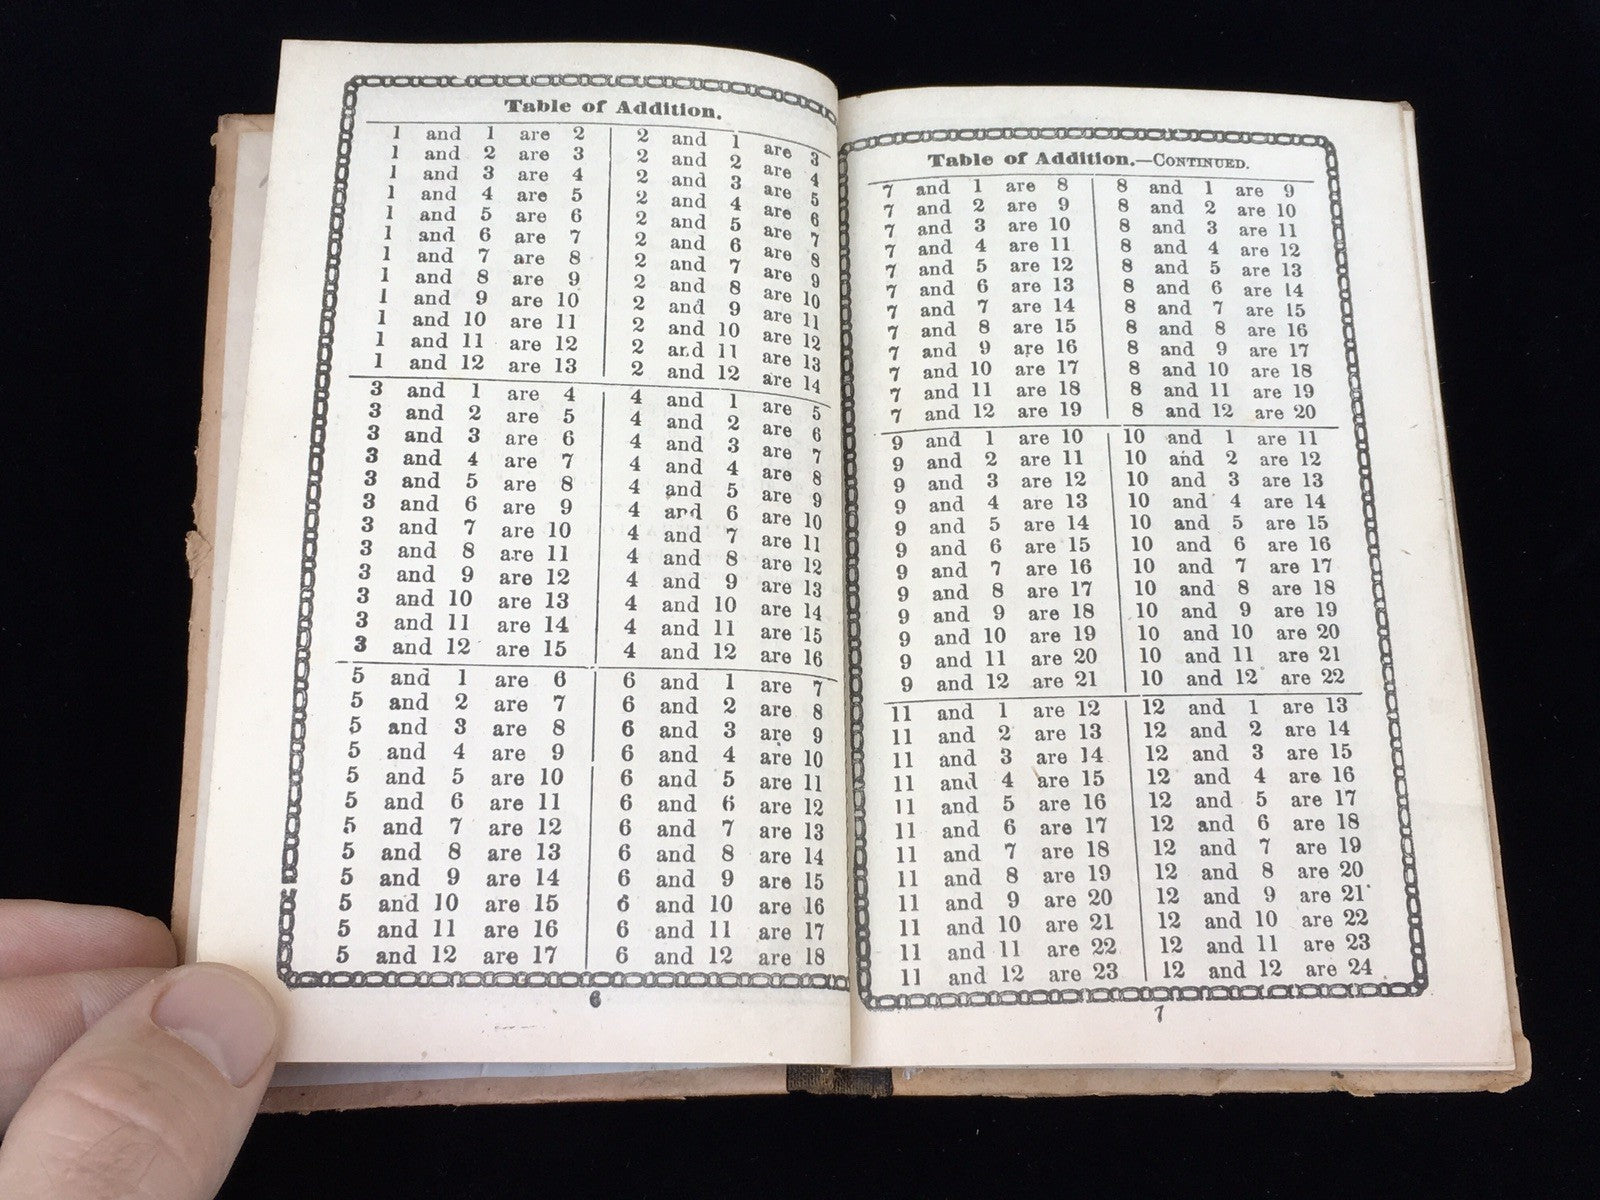 Table of Addition.
1 and 1 are 2 2 and 1 are 3
1 and 2 are 3 2 and 2 are 4
1 and 3 are 4 2 and 3 are 5
1 and 4 are 5 2 and 4 are 6
1 and 5 are 6 2 and 5 are 7
1 and 6 are 7 2 and 6 are 8
1 and 7 are 8 2 and 7 are 9
1 and 8 are 9 2 and 8 are 10
1 and 9 are 10 2 and 9 are 11
1 and 10 are 11 2 and 10 are 12
1 and 11 are 12 2 and 11 are 13
1 and 12 are 13 2 and 12 are 14
3 and 1 are 4 4 and 1 are 5
3 and 2 are 5 4 and 2 are 6
3 and 3 are 6 4 and 3 are 7
3 and 4 are 7 4 and 4 are 8
3 and 5 are 8 4 and 5 are 9
3 and 6 are 9 4 and 6 are 10
3 and 7 are 10 4 and 7 are 11
3 and 8 are 11 4 and 8 are 12
3 and 9 are 12 4 and 9 are 13
3 and 10 are 13 4 and 10 are 14
3 and 11 are 14 4 and 11 are 15
3 and 12 are 15 4 and 12 are 16
5 and 1 are 6 6 and 1 are 7
5 and 2 are 7 6 and 2 are 8
5 and 3 are 8 6 and 3 are 9
5 and 4 are 9 6 and 4 are 10
5 and 5 are 10 6 and 5 are 11
5 and 6 are 11 6 and 6 are 12
5 and 7 are 12 6 and 7 are 13
5 and 8 are 13 6 and 8 are 14
5 and 9 are 14 6 and 9 are 15
5 and 10 are 15 6 and 10 are 16
5 and 11 are 16 6 and 11 are 17
5 and 12 are 17 6 and 12 are 18
6
Table of Addition.—CONTINUED.
7 and 1 are 8 8 and 1 are 9
7 and 2 are 9 8 and 2 are 10
7 and 3 are 10 8 and 3 are 11
7 and 4 are 11 8 and 4 are 12
7 and 5 are 12 8 and 5 are 13
7 and 6 are 13 8 and 6 are 14
7 and 7 are 14 8 and 7 are 15
7 and 8 are 15 8 and 8 are 16
7 and 9 are 16 8 and 9 are 17
7 and 10 are 17 8 and 10 are 18
7 and 11 are 18 8 and 11 are 19
7 and 12 are 19 8 and 12 are 20
9 and 1 are 10 10 and 1 are 11
9 and 2 are 11 10 and 2 are 12
9 and 3 are 12 10 and 3 are 13
9 and 4 are 13 10 and 4 are 14
9 and 5 are 14 10 and 5 are 15
9 and 6 are 15 10 and 6 are 16
9 and 7 are 16 10 and 7 are 17
9 and 8 are 17 10 and 8 are 18
9 and 9 are 18 10 and 9 are 19
9 and 10 are 19 10 and 10 are 20
9 and 11 are 20 10 and 11 are 21
9 and 12 are 21 10 and 12 are 22
11 and 1 are 12 12 and 1 are 13
11 and 2 are 13 12 and 2 are 14
11 and 3 are 14 12 and 3 are 15
11 and 4 are 15 12 and 4 are 16
11 and 5 are 16 12 and 5 are 17
11 and 6 are 17 12 and 6 are 18
11 and 7 are 18 12 and 7 are 19
11 and 8 are 19 12 and 8 are 20
11 and 9 are 20 12 and 9 are 21
11 and 10 are 21 12 and 10 are 22
11 and 11 are 22 12 and 11 are 23
11 and 12 are 23 12 and 12 are 24
7